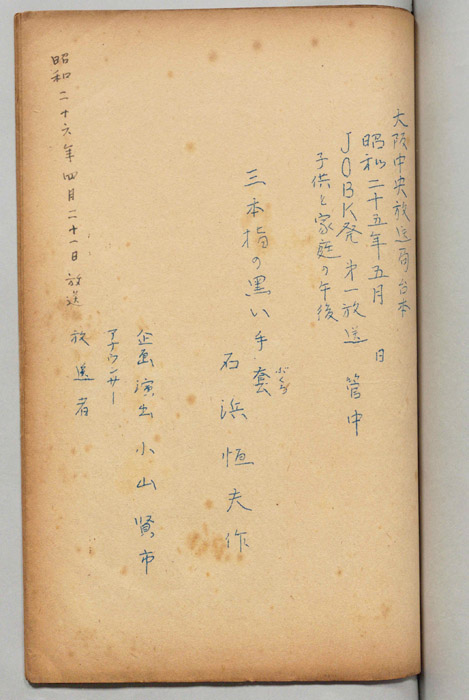 大阪中央放送局台本
昭和二十五年五月　日
JOBK発 第一放送 管中
子供と家庭の午後
三本指の黒い手套
石浜恒夫作
企画演出 小山賢市
アナウンサー
放送者
昭和二十六年四月二十一日放送